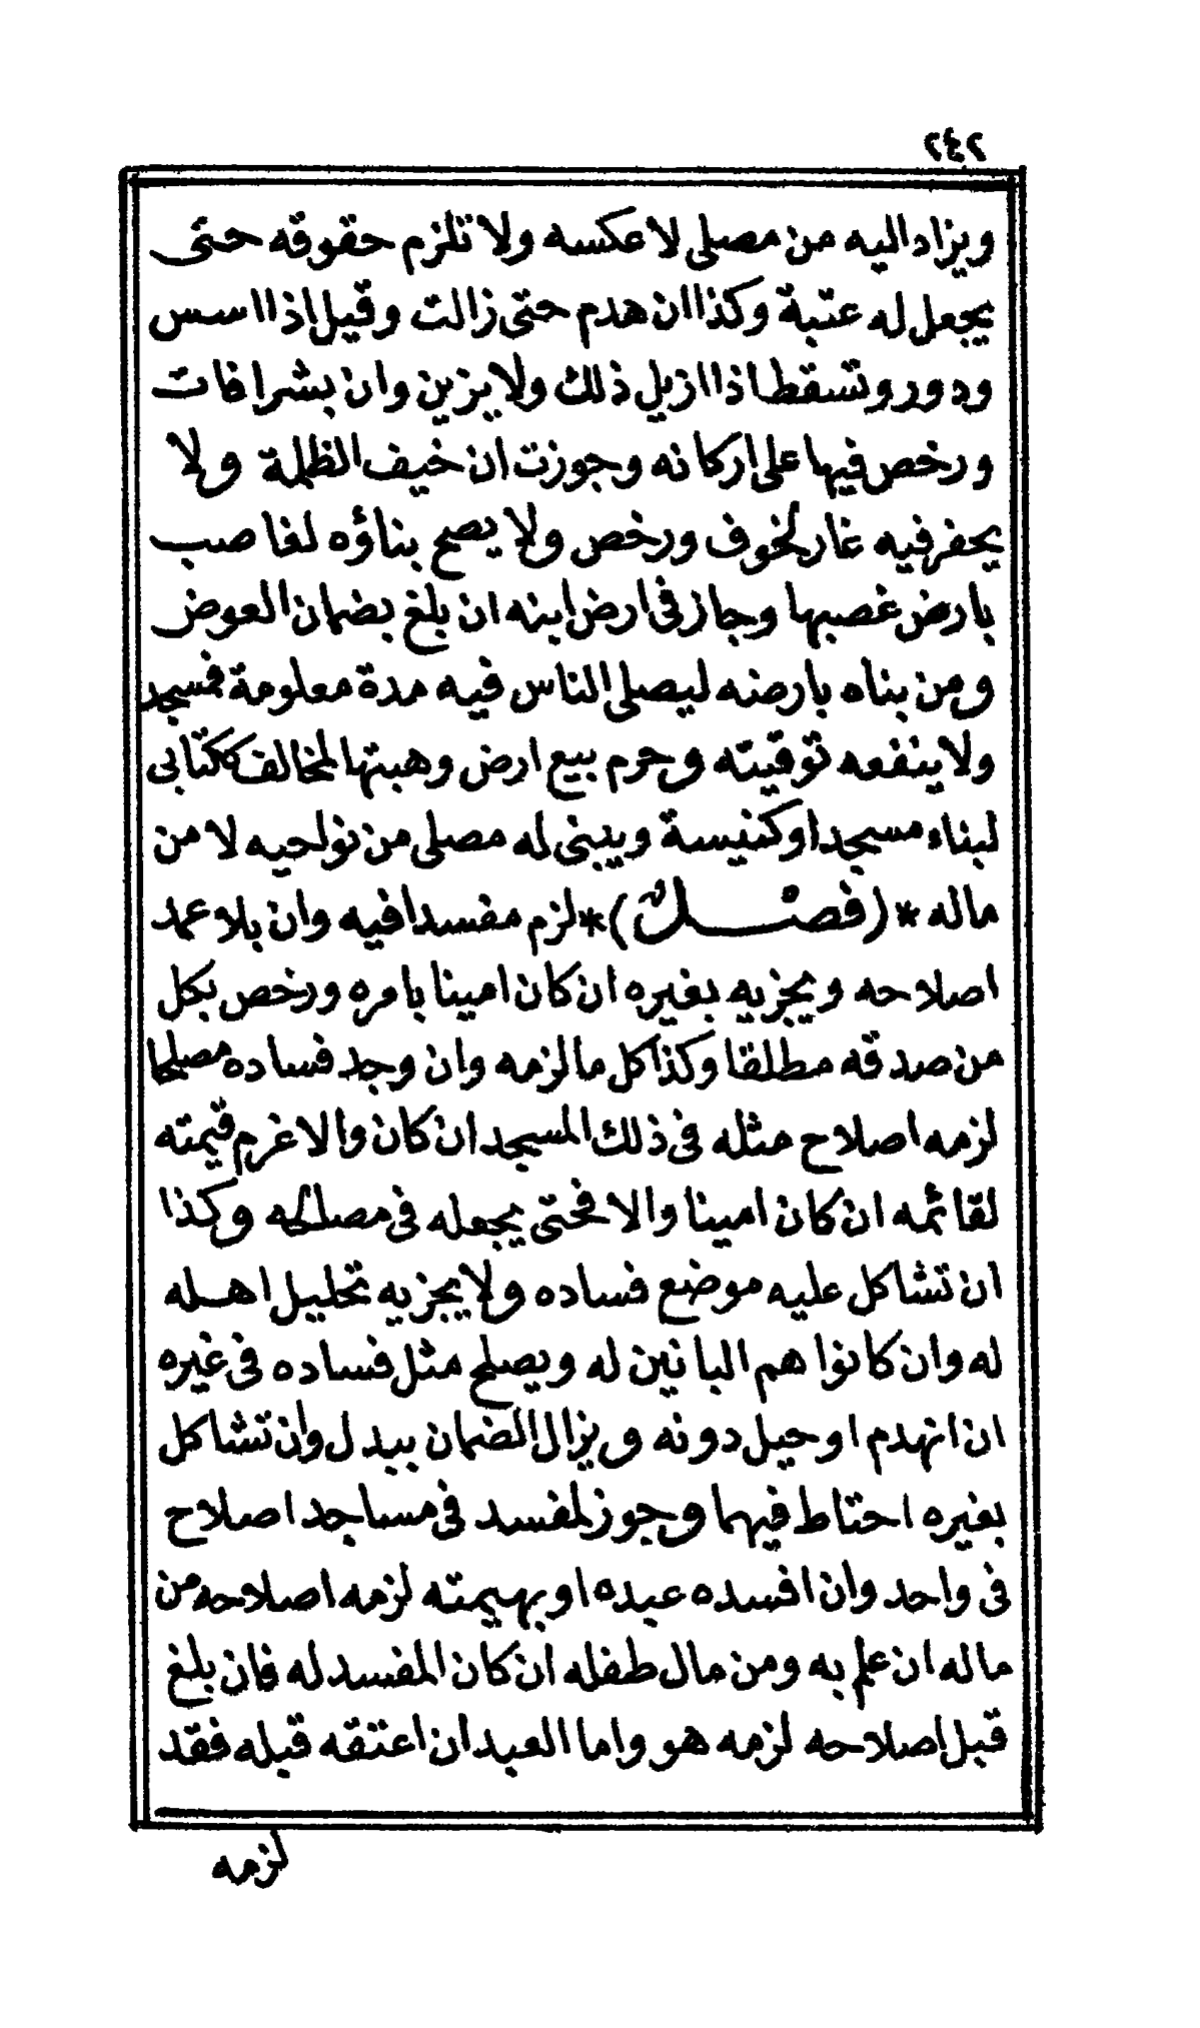 ٢٤٢
ويزاد اليه من مصلى لا عكسه ولا تلزم حقوقه حتى
يجعل له عتبة وكذا ان هدم حتى زالت وقيل اذا اسس
ودور وتسقط اذا ازيل ذلك ولا يزين وان بشرافات
ورخص فيها على اركانه وجوزت ان خيف الظلمة ولا
يحفر فيه غار لخوف ورخص ولا يصح بناؤه لغاصب
بارض غصبها وجاز فى ارض ابنه ان بلغ بضمان العوض
ومن بناه بارضه ليصلى الناس فيه مدة معلومة فمسجد
ولا ينفعه توقيته وحرم بيع ارض وهبتها لمخالف ككتابى
لبناء مسجد او كنيسة ويبنى له مصلى من نواحيه لا من
ماله * (فصل) * لزم مفسدا فيه وان بلا عمد
اصلاحه ويجزيه بغيره ان كان امينا بامره ورخص بكل
من صدقه مطلقا وكذا كل ما لزمه وان وجد فساده مصلحا
لزمه اصلاح مثله فى ذلك المسجد ان كان والا غرم قيمته
لقائمه ان كان امينا والا فحتى يجعله فى مصالحه وكذا
ان تشاكل عليه موضع فساده ولا يجزيه تحليل اهله
له وان كانوا هم البانين له ويصلح مثل فساده فى غيره
ان انهدم او حيل دونه ويزال الضمان ببدل وان تشاكل
بغيره احتاط فيهما وجوز لمفسد فى مساجد اصلاح
فى واحد وان افسده عبده او بهيمته لزمه اصلاحه من
ماله ان علم به ومن مال طفله ان كان المفسد له فان بلغ
قبل اصلاحه لزمه هو واما العبد ان اعتقه قبله فقد
لزمه